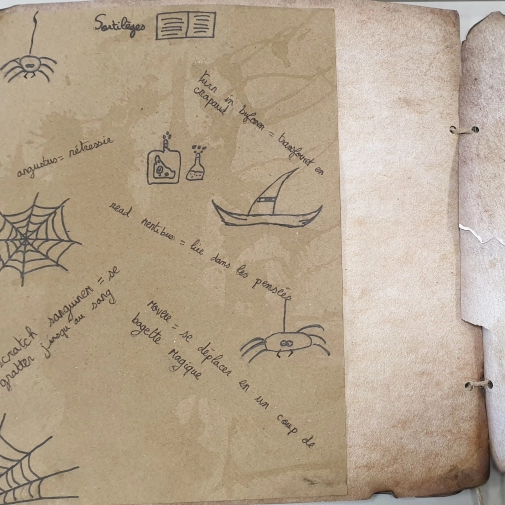 Sortilèges
turn in bufonn = transformer en
crapaud
angustus = rétressir
read mentibus = lire dans les pensées
scratch sanguinem = se
gratter jusqu'au sang
movere = se déplacer en un coup de
bagette magique